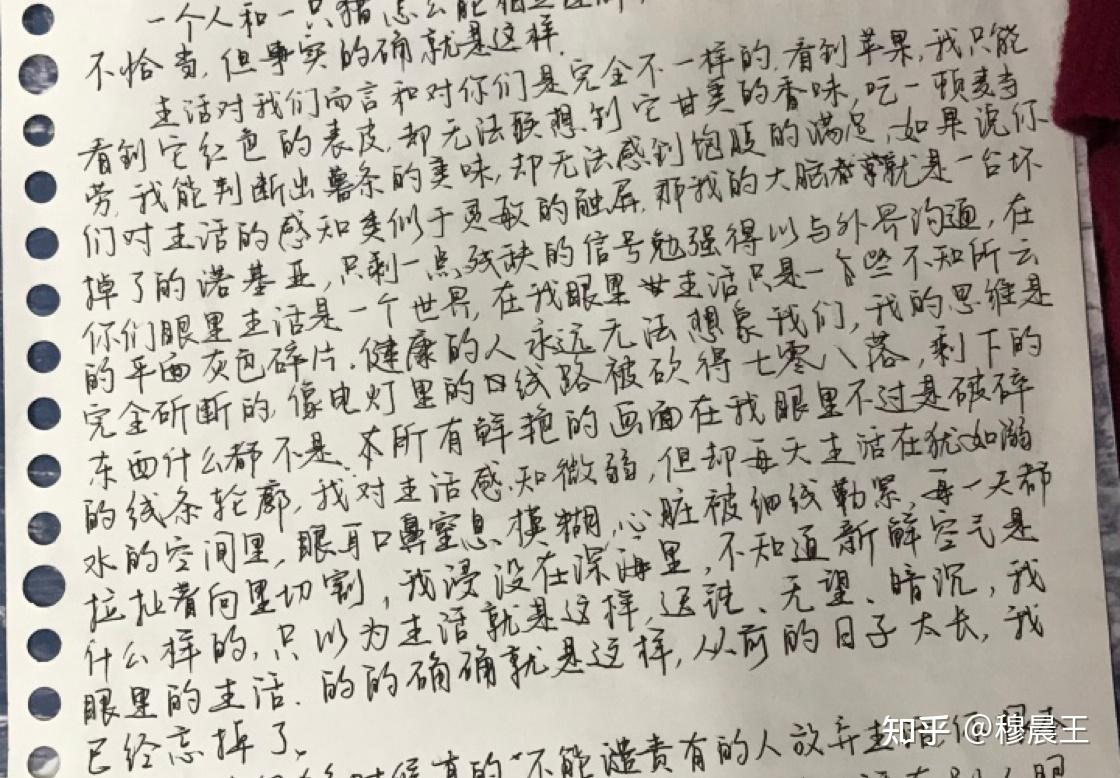 一个人和一只猫怎么能相互理解,
不恰当,但事实的确就是这样.
生活对我们而言和对你们是完全不一样的.看到苹果,我只能
看到它红色的表皮,却无法联想到它甘美的香味,吃一顿麦当
劳,我能判断出薯条的美味,却无法感到饱腹的满足,如果说你
们对生活的感知类似于灵敏的触屏,那我的大脑就是一台坏
掉了的诺基亚,只剩一点残缺的信号勉强得以与外界沟通,在
你们眼里生活是一个世界,在我眼里生活只是一些不知所云
的平面灰色碎片.健康的人永远无法想象我们,我的思维是
完全斫断的,像电灯里的线路被砍得七零八落,剩下的
东西什么都不是.所有鲜艳的画面在我眼里不过是破碎
的线条轮廓,我对生活感知微弱,但却每天生活在犹如溺
水的空间里,眼耳口鼻窒息模糊,心脏被细线勒紧,每一天都
拉扯着向里切割,我浸没在深海里,不知道新鲜空气是
什么样的,只以为生活就是这样,迟钝、无望、暗沉,我
眼里的生活.的的确确就是这样,从前的日子太长,我
已经忘掉了.
时候真的"不能谴责有的人放弃生
知乎 @穆晨王